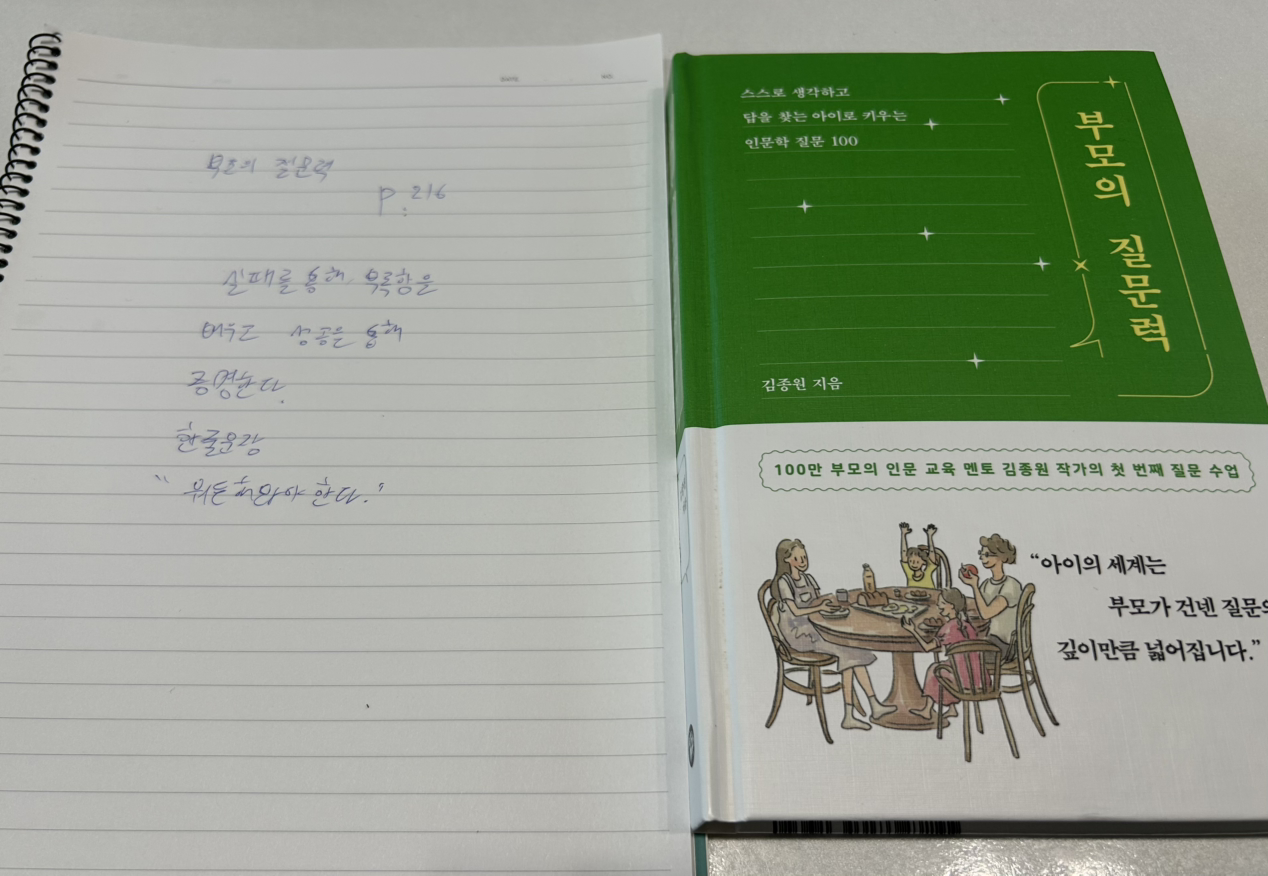 부모의 질문력
p.216
실패를 통해 부족함은
배우고 성공은 통해
증명한다.
한줄문장
"뭐든 해봐야 한다."
DATE NO.
스스로 생각하고
답을 찾는 아이로 키우는
인문학 질문 100
부모의 질문력
김종원 지음
100만 부모의 인문 교육 멘토 김종원 작가의 첫 번째 질문 수업
“아이의 세계는
부모가 건넨 질문의
깊이만큼 넓어집니다.”